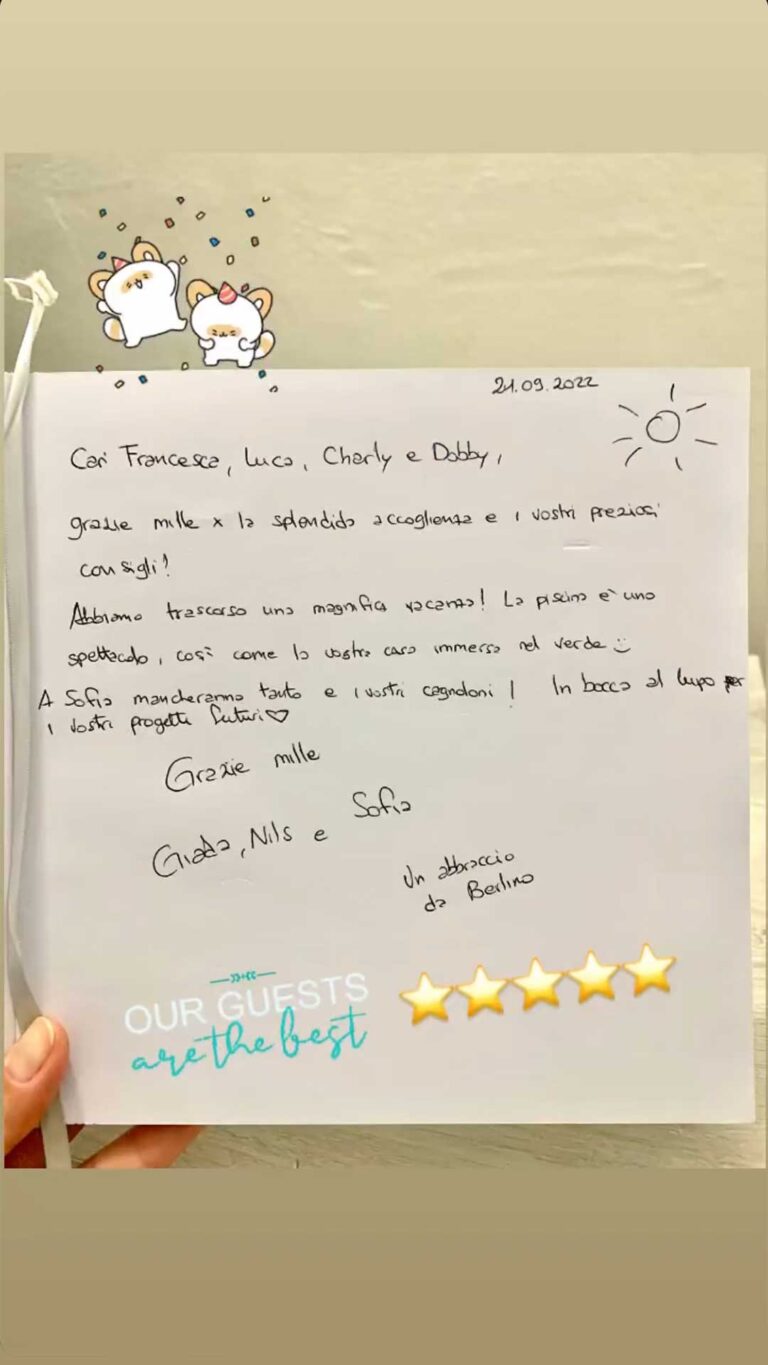 21.09.2022
Cari Francesca, Luca, Charly e Dobby,
grazie mille x la splendida accoglienza e i vostri preziosi
consigli!
Abbiamo trascorso una magnifica vacanza! La piscina è uno
spettacolo, così come la vostra casa immersa nel verde
A Sofia mancheranno tanto e i vostri cagnoloni! In bocca al lupo per
i vostri progetti futuri♡
Grazie mille
Giada, Nils e Sofia
Un abbraccio
da Berlino
OUR GUESTS
are the best